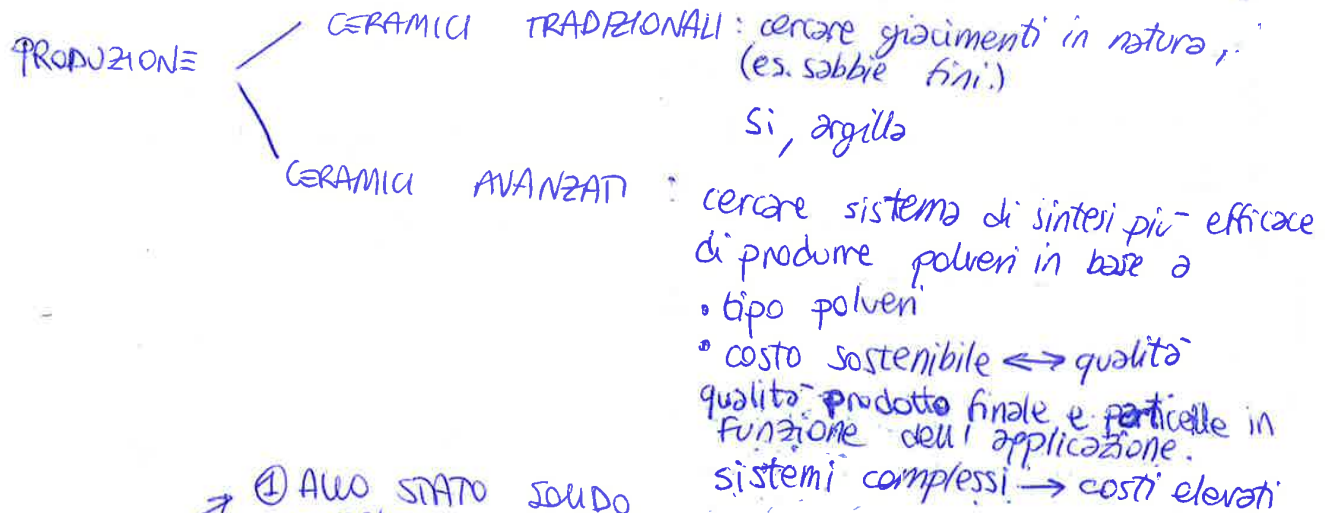 PRODUZIONE
CERAMICI TRADIZIONALI: cercare giacimenti in natura,
(es. sabbie fini.)
Si, argilla
CERAMICI AVANZATI :
cercare sistema di sintesi più efficace
di produrre polveri in base a
• tipo polveri
• costo sostenibile ⟷ qualità
qualità prodotto finale e particelle in
funzione dell'applicazione.
sistemi complessi → costi elevati
→ ① ALLO STATO SOLIDO